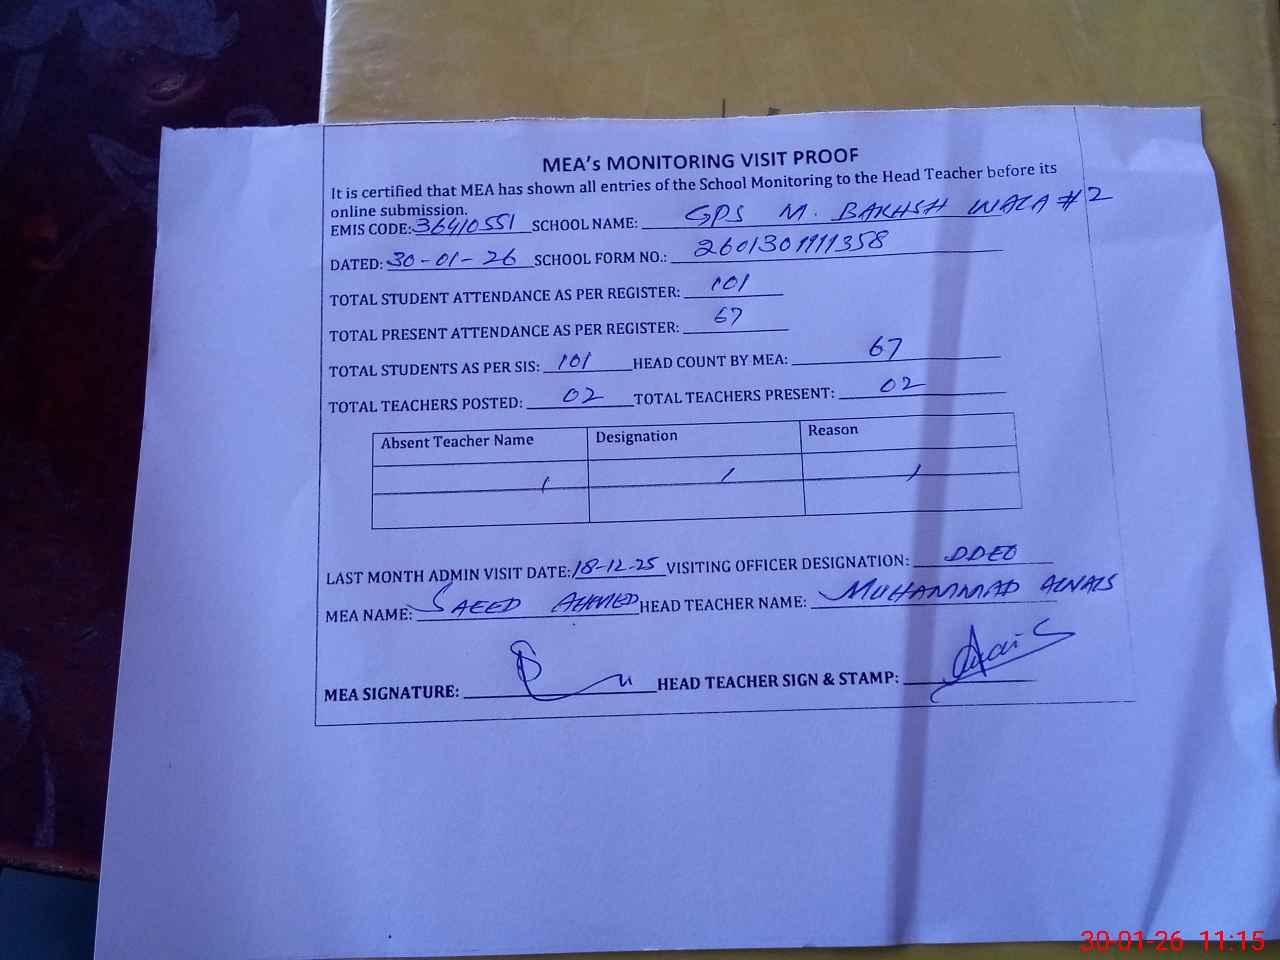 MEA's MONITORING VISIT PROOF
It is certified that MEA has shown all entries of the School Monitoring to the Head Teacher before its
online submission.
EMIS CODE: 36410551 SCHOOL NAME: GPS M. BAKHSH WALA #2
DATED: 30-01-26 SCHOOL FORM NO.: 2601301111358
TOTAL STUDENT ATTENDANCE AS PER REGISTER: 101
TOTAL PRESENT ATTENDANCE AS PER REGISTER: 67
TOTAL STUDENTS AS PER SIS: 101 HEAD COUNT BY MEA: 67
TOTAL TEACHERS POSTED: 02 TOTAL TEACHERS PRESENT: 02
Absent Teacher Name Designation Reason
LAST MONTH ADMIN VISIT DATE: 18-12-25 VISITING OFFICER DESIGNATION: DDEO
MEA NAME: SAEED AHMED HEAD TEACHER NAME: MUHAMMAD
MEA SIGNATURE: HEAD TEACHER SIGN & STAMP:
30-01-26 11:15